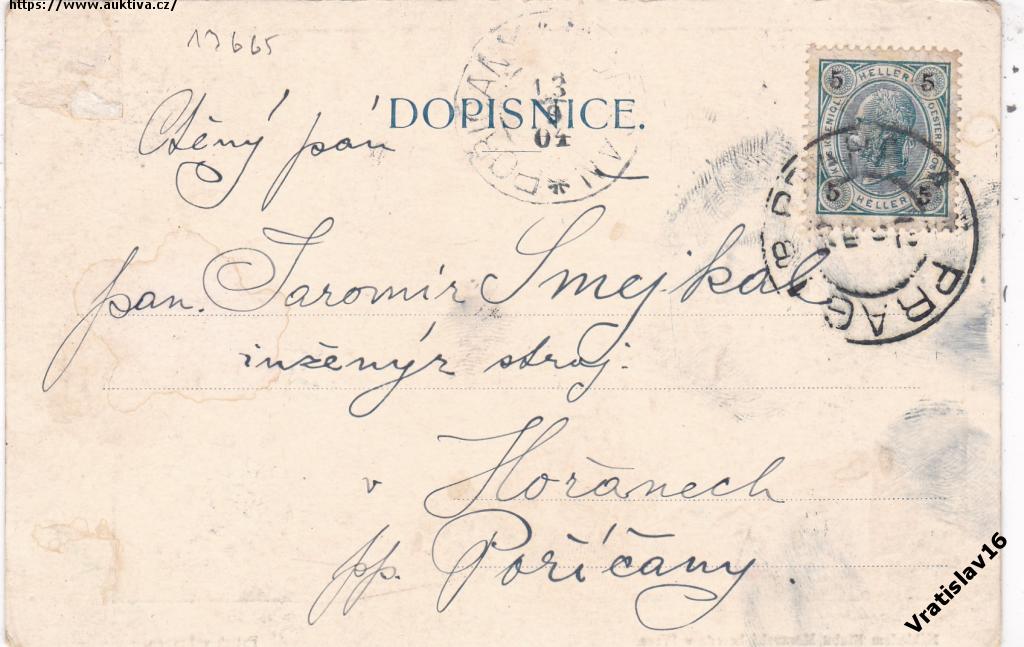 https://www.auktiva.cz/
13665
DOPISNICE.
Ctěný pán
13
9
04
5 HELLER 5
5 HELLER 5
PRAG
pan. Jaromír Smejkal
inženýr stroj.
v Hořanech
pp. Poříčany.
Vratislav16